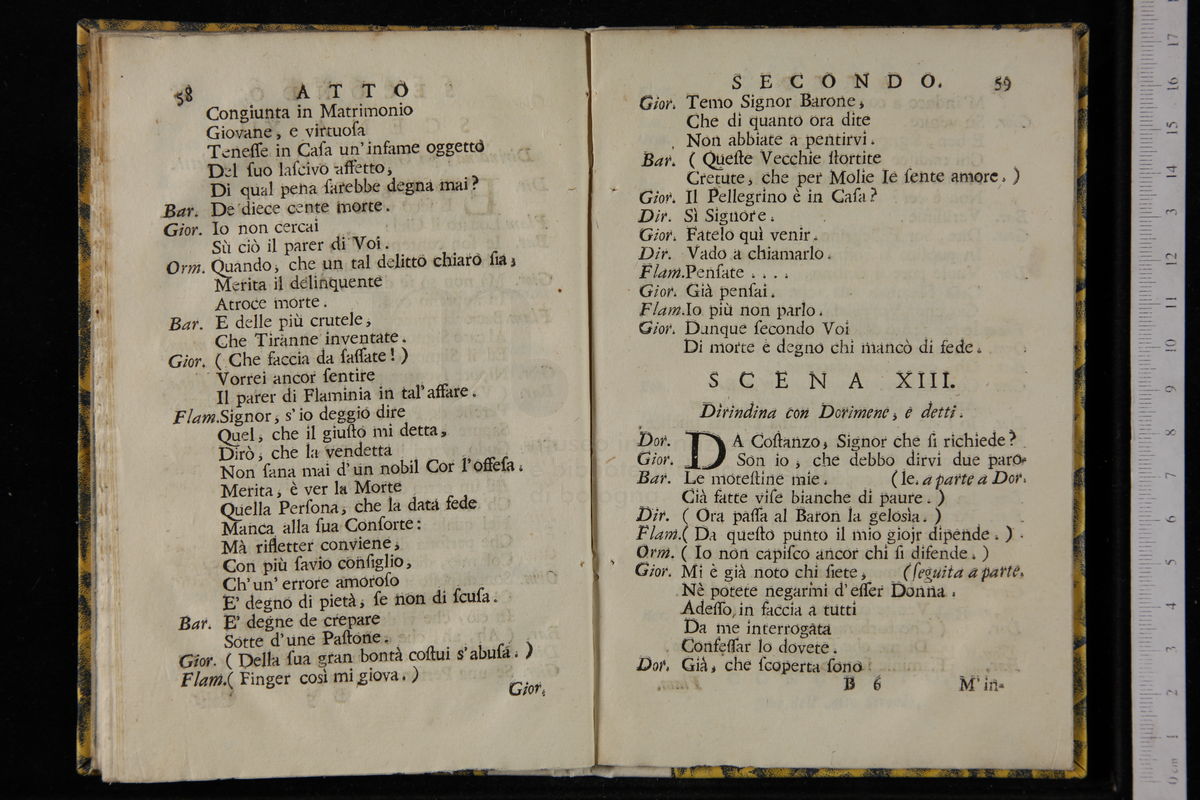 58 ATTO
Congiunta in Matrimonio
Giovane, e virtuoſa
Teneſſe in Caſa un'infame oggetto
Del ſuo laſcivo affetto,
Di qual pena ſarebbe degna mai?
Bar. De diece cente morte.
Gior. Io non cercai
Sù ciò il parer di Voi.
Orm. Quando, che un tal delitto chiaro ſia,
Merita il delinquente
Atroce morte.
Bar. E delle più crutele,
Che Tiranne inventate.
Gior. ( Che faccia da ſaſſate! )
Vorrei ancor ſentire
Il parer di Flaminia in tal'affare.
Flam. Signor, s'io deggio dire
Quel, che il giuſto mi detta,
Dirò, che la vendetta
Non ſana mai d'un nobil Cor l'offeſa.
Merita, è ver la Morte
Quella Perſona, che la data fede
Manca alla ſua Conſorte:
Mà rifletter conviene,
Con più ſavio conſiglio,
Ch'un'errore amoroſo
E' degno di pietà, ſe non di ſcuſa.
Bar. E' degne de crepare
Sotte d'une Paſtone.
Gior. ( Della ſua gran bontà coſtui s'abuſa. )
Flam. ( Finger così mi giova. )
Gior.
SECONDO. 59
Gior. Temo Signor Barone,
Che di quanto ora dite
Non abbiate a pentirvi.
Bar. ( Queſte Vecchie ſtortite
Cretute, che per Molie Ie ſente amore. )
Gior. Il Pellegrino è in Caſa?
Dir. Sì Signore.
Gior. Fatelo quì venir.
Dir. Vado a chiamarlo.
Flam. Penſate . . . .
Gior. Già penſai.
Flam. Io più non parlo.
Gior. Dunque ſecondo Voi
Di morte è degno chi mancò di fede.
SCENA XIII.
Dirindina con Dorimene, e detti.
Dor. DA Coſtanzo, Signor che ſi richiede?
Gior. Son io, che debbo dirvi due paro-
Bar. Le moteſtine mie. (le. a parte a Dor.
Già fatte viſe bianche di paure. )
Dir. ( Ora paſſa al Baron la geloſia. )
Flam. ( Da queſto punto il mio giojr dipende. )
Orm. ( Io non capiſco ancor chi ſi difende. )
Gior. Mi è già noto chi ſiete, (ſeguita a parte.
Nè potete negarmi d'eſſer Donna.
Adeſſo, in faccia a tutti
Da me interrogata
Confeſſar lo dovete.
Dor. Già, che ſcoperta ſono
B 6 M'in-